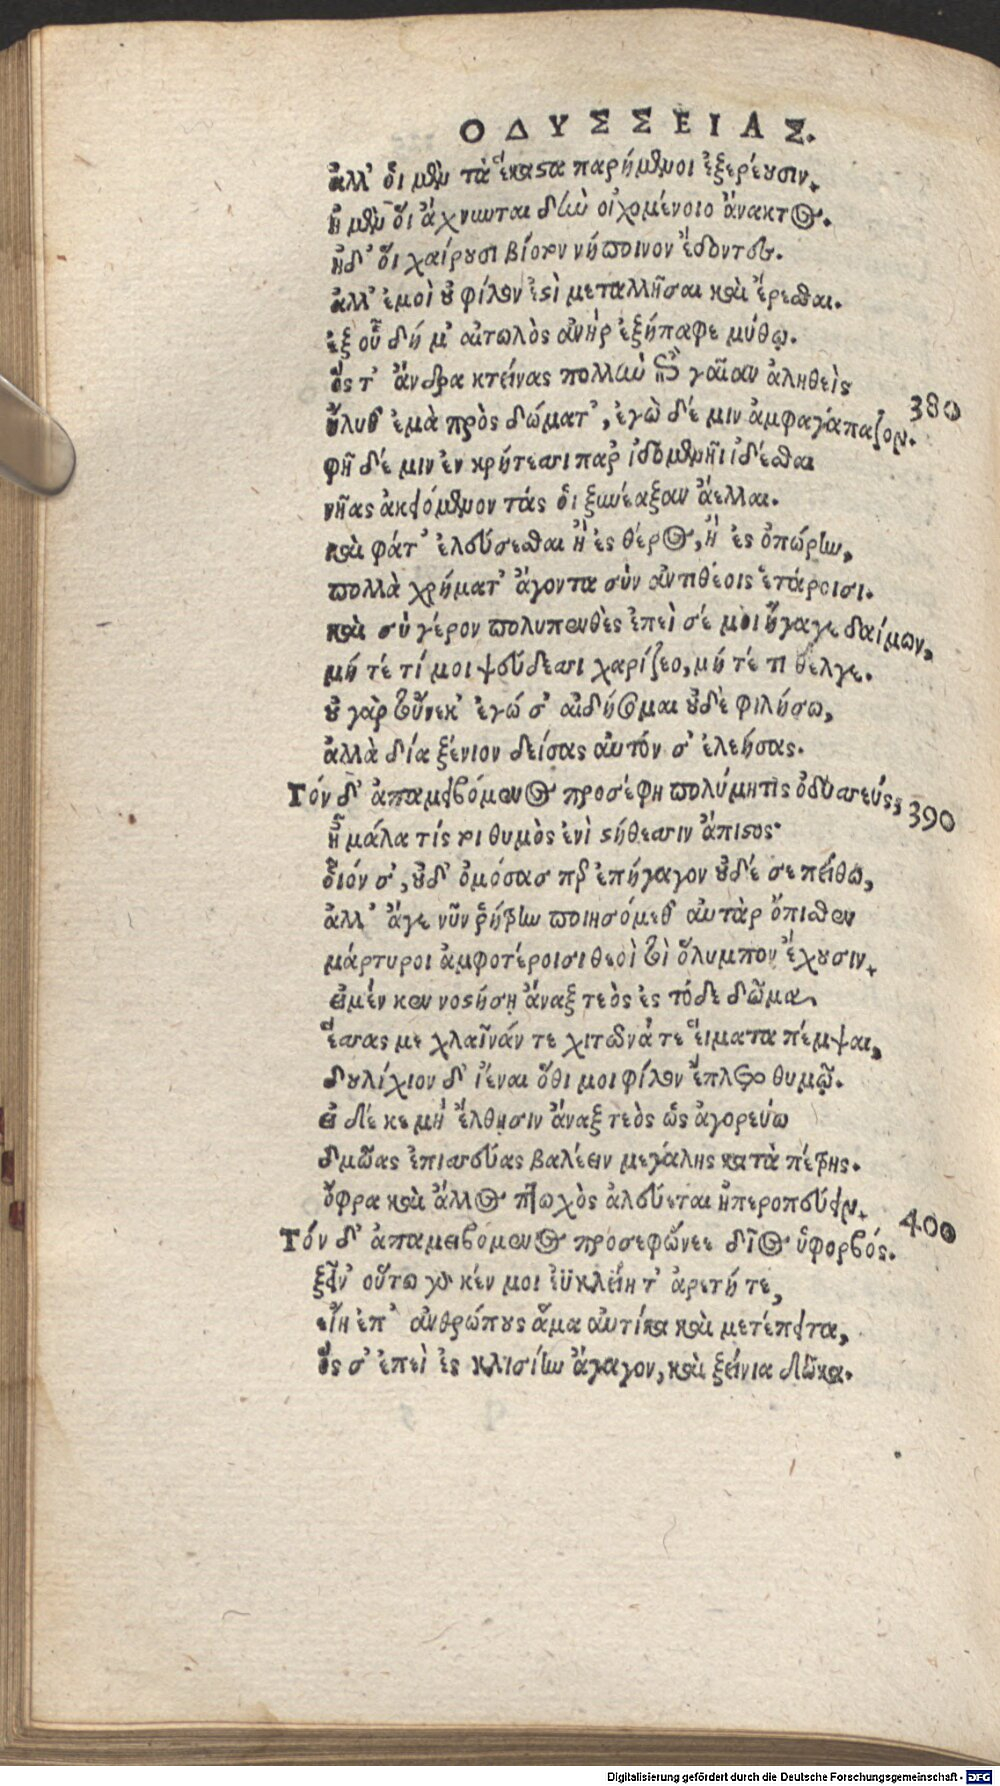 ΟΔΥΣΣΕΙΑΣ.
ἀλλ' οἱ μὲν τὰ ἕκαστα παρήμενοι ἐξερέουσιν,
ἢ μὲν οἳ ἄχνυνται δὴν οἰχομένοιο ἄνακτος.
ἠδ' οἳ χαίρουσι βίοτον νήποινον ἔδοντες.
ἀλλ' ἐμοὶ οὐ φίλον ἐστὶ μεταλλῆσαι καὶ ἔρεσθαι.
ἐξ οὗ δή μ' αἰτωλὸς ἀνὴρ ἐξήπαφε μύθῳ.
ὅς τ' ἄνδρα κτείνας πολλὴν ἐπὶ γαῖαν ἀληθεὶς
ἤλυθ' ἐμὰ πρὸς δώματ', ἐγὼ δέ μιν ἀμφαγάπαζον.
380
φῆ δέ μιν ἐν κρήτεσσι παρ' ἰδομενῆι ἰδέσθαι
νῆας ἀκειόμενον τάς οἱ ξυνέαξαν ἄελλαι.
καὶ φάτ' ἐλεύσεσθαι ἢ ἐς θέρος, ἢ ἐς ὀπώρην,
πολλὰ χρήματ' ἄγοντα σὺν ἀντιθέοις ἑτάροισι.
καὶ σὺ γέρον πολυπενθὲς ἐπεὶ σέ μοι ἤγαγε δαίμων,
μή τέ τί μοι ψεύδεσσι χαρίζεο, μή τέ τι θέλγε.
οὐ γὰρ τοὔνεκ' ἐγώ σ' αἰδήσομαι οὐδὲ φιλήσω,
ἀλλὰ δία ξένιον δείσας αὐτόν σ' ἐλεήσας.
Τόν δ' ἀπαμειβόμενος προσέφη πολύμητις ὀδυσσεύς,
390
ἦ μάλα τίς τοι θυμὸς ἐνὶ στήθεσσιν ἄπιστος
οἷόν σ', οὐδ' ὀμόσας περ ἐπήγαγον οὐδέ σε πείθω,
ἀλλ' ἄγε νῦν ῥήτρην ποιησόμεθ' αὐτὰρ ὄπισθεν
μάρτυροι ἀμφοτέροισι θεοὶ τοὶ ὄλυμπον ἔχουσιν,
εἰ μέν κεν νοστήσῃ ἄναξ τεὸς ἐς τόδε δῶμα,
ἕσσας με χλαῖνάν τε χιτῶνά τε εἵματα πέμψαι,
δουλίχιον δ' ἰέναι ὅθι μοι φίλον ἔπλετο θυμῷ.
εἰ δέ κε μὴ ἔλθῃσιν ἄναξ τεὸς ὡς ἀγορεύω
δμῶας ἐπισσεύας βαλέειν μεγάλης κατὰ πέτρης.
ὄφρα καὶ ἄλλος πτωχὸς ἀλεύεται ἠπεροπεύειν,
400
Τόν δ' ἀπαμειβόμενος προσεφώνεε δῖος ὑφορβός.
ξεῖν' οὕτω γάρ κέν μοι ἐϋκλείη τ' ἀρετή τε,
εἴη ἐπ' ἀνθρώπους ἅμα αὐτίκα καὶ μετέπειτα,
ὅς σ' ἐπεὶ ἐς κλισίην ἄγαγον, καὶ ξείνια δῶκα.
Digitalisierung gefördert durch die Deutsche Forschungsgemeinschaft - DFG